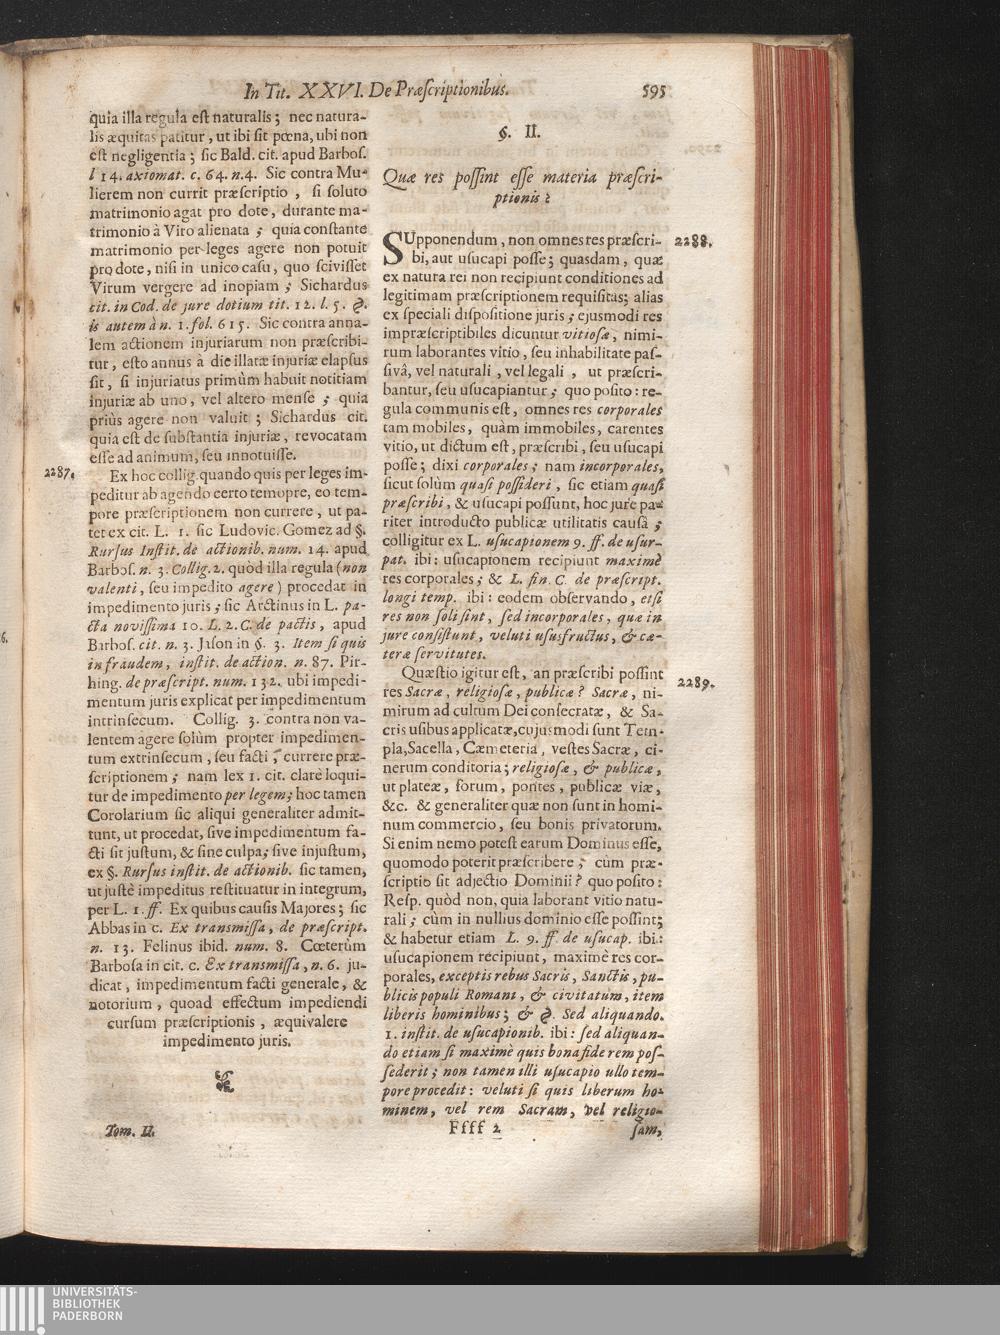 In Tit. XXVI. De Præſcriptionibus. 595
quia illa regula eſt naturalis; nec natura-
lis æquitas patitur, ut ibi ſit pœna, ubi non
eſt negligentia; ſic Bald. cit. apud Barboſ.
l 14. axiomat. c. 64. n.4. Sic contra Mu-
lierem non currit præſcriptio, ſi ſoluto
matrimonio agat pro dote, durante ma-
trimonio à Viro alienata; quia conſtante
matrimonio per leges agere non potuit
pro dote, niſi in unico caſu, quo ſciviſſet
Virum vergere ad inopiam; Sichardus
cit. in Cod. de jure dotium tit. 12. l. 5. §.
is autem à n. 1. fol. 615. Sic contra anna-
lem actionem injuriarum non præſcribi-
tur, eſto annus à die illatæ injuriæ elapſus
ſit, ſi injuriatus primùm habuit notitiam
injuriæ ab uno, vel altero menſe; quia
priùs agere non valuit; Sichardus cit.
quia eſt de ſubſtantia injuriæ, revocatam
eſſe ad animum, ſeu innotuiſſe.
2287. Ex hoc collig. quando quis per leges im-
peditur ab agendo certo temopre, eo tem-
pore præſcriptionem non currere, ut pa-
tet ex cit. L. 1. ſic Ludovic. Gomez ad §.
Rurſus Inſtit. de actionib. num. 14. apud
Barboſ. n. 3. Collig. 2. quòd illa regula (non
valenti, ſeu impedito agere) procedat in
impedimento juris; ſic Arctinus in L. pa-
cta noviſſima 10. L. 2. C. de pactis, apud
Barboſ. cit. n. 3. Jaſon in §. 3. Item ſi quis
in fraudem, inſtit. de action. n. 87. Pir-
hing. de præſcript. num. 132. ubi impedi-
mentum juris explicat per impedimentum
intrinſecum. Collig. 3. contra non va-
lentem agere ſolùm propter impedimen-
tum extrinſecum, ſeu facti, currere præ-
ſcriptionem; nam lex 1. cit. clarè loqui-
tur de impedimento per legem; hoc tamen
Corolarium ſic aliqui generaliter admit-
tunt, ut procedat, ſive impedimentum fa-
cti ſit juſtum, & ſine culpa; ſive injuſtum,
ex §. Rurſus inſtit. de actionib. ſic tamen,
ut juſtè impeditus reſtituatur in integrum,
per L. 1. ff. Ex quibus cauſis Majores; ſic
Abbas in c. Ex transmiſſa, de præſcript.
n. 13. Felinus ibid. num. 8. Cœterùm
Barboſa in cit. c. Ex transmiſſa, n. 6. ju-
dicat, impedimentum facti generale, &
notorium, quoad effectum impediendi
curſum præſcriptionis, æquivalere
impedimento juris.
Tom. II.
§. II.
Quæ res poſſint eſſe materia præſcri-
ptionis?
SUpponendum, non omnes res præſcri- 2288.
bi, aut uſucapi poſſe; quasdam, quæ
ex natura rei non recipiunt conditiones ad
legitimam præſcriptionem requiſitas; alias
ex ſpeciali diſpoſitione juris; ejusmodi res
impræſcriptibiles dicuntur vitioſæ, nimi-
rum laborantes vitio, ſeu inhabilitate paſ-
ſivâ, vel naturali, vel legali, ut præſcri-
bantur, ſeu uſucapiantur; quo poſito: re-
gula communis eſt, omnes res corporales
tam mobiles, quàm immobiles, carentes
vitio, ut dictum eſt, præſcribi, ſeu uſucapi
poſſe; dixi corporales; nam incorporales,
ſicut ſolùm quaſi poſſideri, ſic etiam quaſi
præſcribi, & uſucapi poſſunt, hoc jure pa-
riter introducto publicæ utilitatis causâ;
colligitur ex L. uſucapionem 9. ff. de uſur-
pat. ibi: uſucapionem recipiunt maximè
res corporales; & L. fin. C. de præſcript.
longi temp. ibi: eodem obſervando, etſi
res non ſoli ſint, ſed incorporales, quæ in
jure conſiſtunt, veluti uſusfructus, & cæ-
teræ ſervitutes.
Quæſtio igitur eſt, an præſcribi poſſint 2289.
res Sacræ, religioſæ, publicæ? Sacræ, ni-
mirum ad cultum Dei conſecratæ, & Sa-
cris uſibus applicatæ, cujusmodi ſunt Tem-
pla, Sacella, Cæmeteria, veſtes Sacræ, ci-
nerum conditoria; religioſæ, & publicæ,
ut plateæ, forum, pontes, publicæ viæ,
&c. & generaliter quæ non ſunt in homi-
num commercio, ſeu bonis privatorum.
Si enim nemo poteſt earum Dominus eſſe,
quomodo poterit præſcribere; cùm præ-
ſcriptio ſit adjectio Dominii? quo poſito:
Reſp. quòd non, quia laborant vitio natu-
rali; cùm in nullius dominio eſſe poſſint;
& habetur etiam L. 9. ff. de uſucap. ibi:
uſucapionem recipiunt, maximè res cor-
porales, exceptis rebus Sacris, Sanctis, pu-
blicis populi Romani, & civitatum, item
liberis hominibus; & §. Sed aliquando.
1. inſtit. de uſucapionib. ibi: ſed aliquan-
do etiam ſi maximè quis bona fide rem poſ-
ſederit; non tamen illi uſucapio ullo tem-
pore procedit: veluti ſi quis liberum ho-
minem, vel rem Sacram, vel religio-
Ffff 2 ſam,
UNIVERSITÄTS-
BIBLIOTHEK
PADERBORN